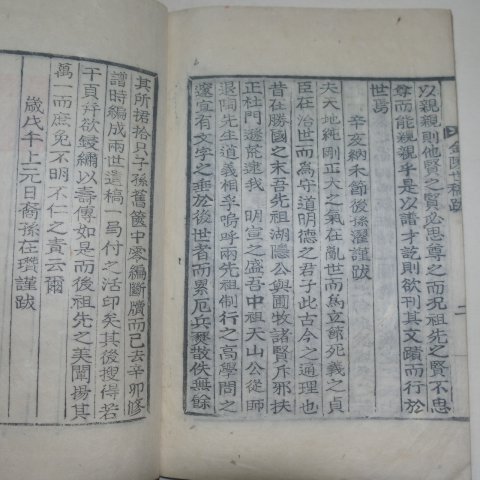 以親親則他賢之賢必思尊之而況祖先之賢不思
尊而能親親乎是以諸才訖則欲刊其文蹟而行於
世焉
辛亥納禾節後孫濯謹跋
夫天地純剛正大之氣在亂世而爲立節死義之貞
臣在治世而爲守道明德之君子此古今之通理也
昔在勝國之末吾先祖湖隱公與圃牧諸賢斥邪扶
正杜門遯荒逮我 明宣之盛吾中祖天山公從師
退陶先生道義相孚嗚呼兩先祖制行之高學問之
邃宜有文字之垂於後世者而累厄兵燹散佚無餘
金陵世稿跋
二
其所捃拾只子孫舊篋中零編斷牘而已去辛卯修
譜時編成兩世遺稿一易付之活印矣其後搜得若
干頁并欲鋟繡以壽傳如是而後祖先之美闡揚其
萬一而庶免不明不仁之責云爾
歲戊午上元日裔孫在瓚謹跋